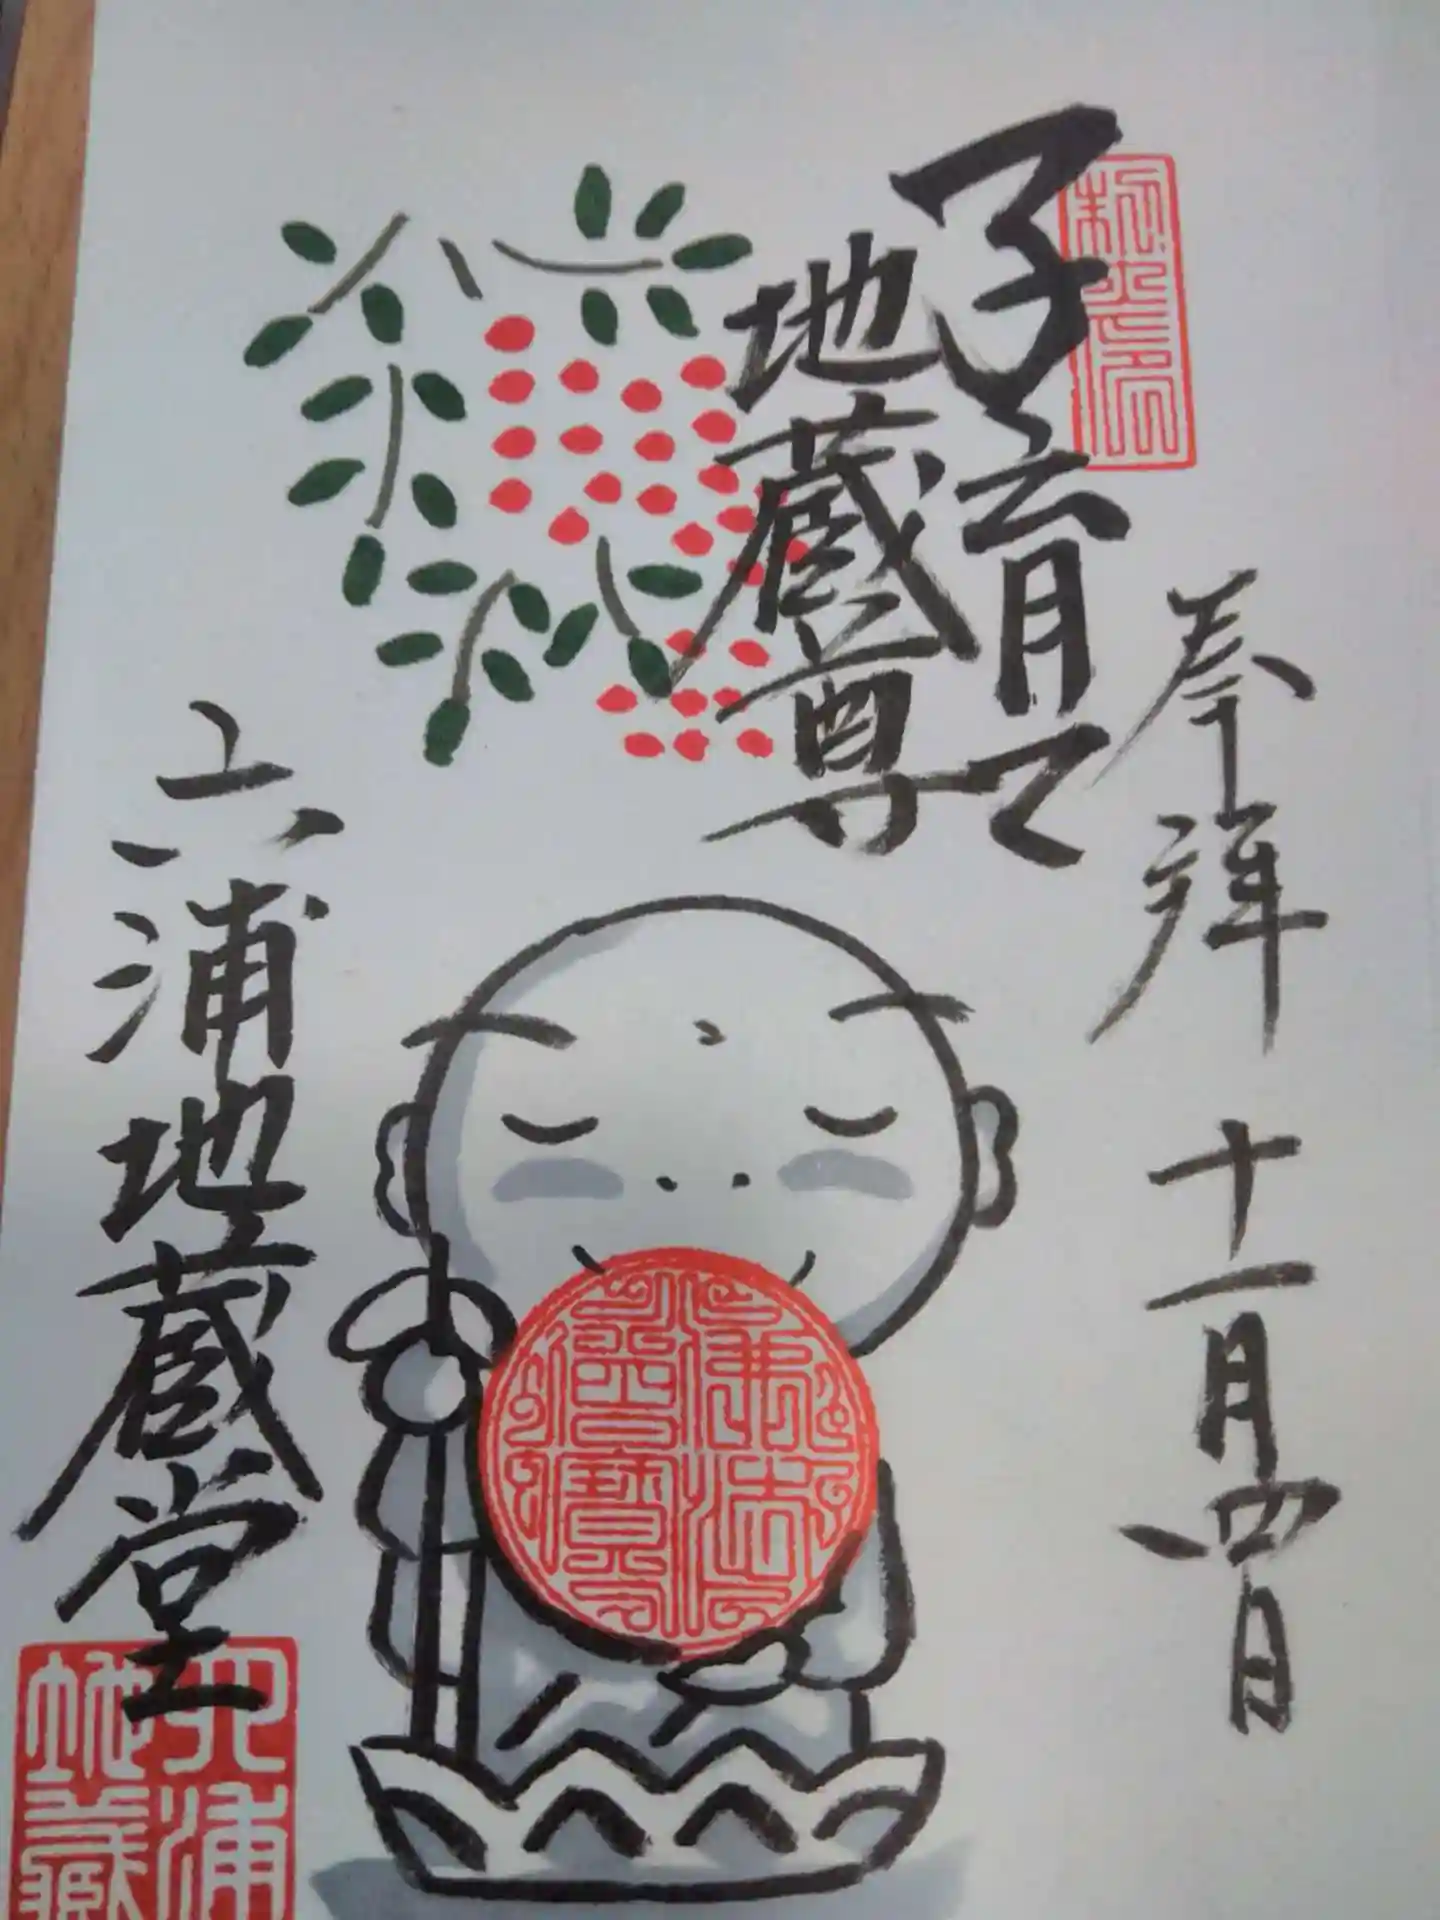 奉拝 十一月四日
子育て
地蔵尊
六浦地蔵堂
六浦
地蔵